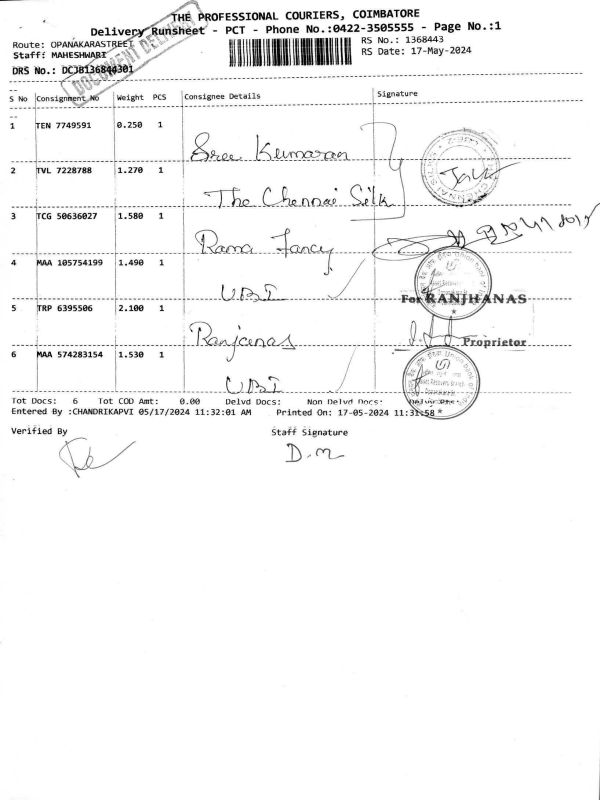 THE PROFESSIONAL COURIERS, COIMBATORE
Delivery Runsheet - PCT - Phone No.:0422-3505555 - Page No.:1
DOCUMENT DELIVERY
Route: OPANAKARASTREET
RS No.: 1368443
Staff: MAHESHWARI
RS Date: 17-May-2024
DRS No.: DCJB136844301
S No Consignment No Weight PCS Consignee Details Signature
1 TEN 7749591 0.250 1 Sree Kumaran
2 TVL 7228788 1.270 1 The Chennai Silk
3 TCG 50636027 1.580 1 Rama Fancy
4 MAA 105754199 1.490 1 UBI
For RANJHANAS
5 TRP 6395506 2.100 1 Ranjeenas
Proprietor
6 MAA 574283154 1.530 1 UBI
Tot Docs: 6 Tot COD Amt: 0.00 Delvd Docs: Non Delvd Docs:
Entered By :CHANDRIKAPVI 05/17/2024 11:32:01 AM Printed On: 17-05-2024 11:31:58
Verified By Staff Signature
D.M